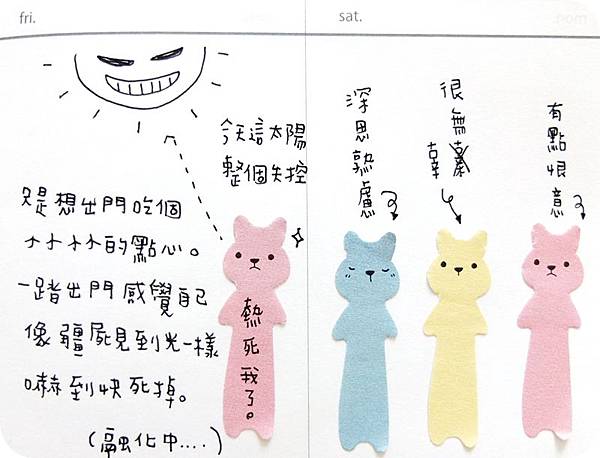 fri.
sat.
今天這太陽
整個失控
只是想出門吃個
小小小小的點心。
一踏出門感覺自己
像疆屍見到光一樣
嚇到快死掉。
(融化中....)
熱死我了。
深思熟慮
很無辜
有點恨意